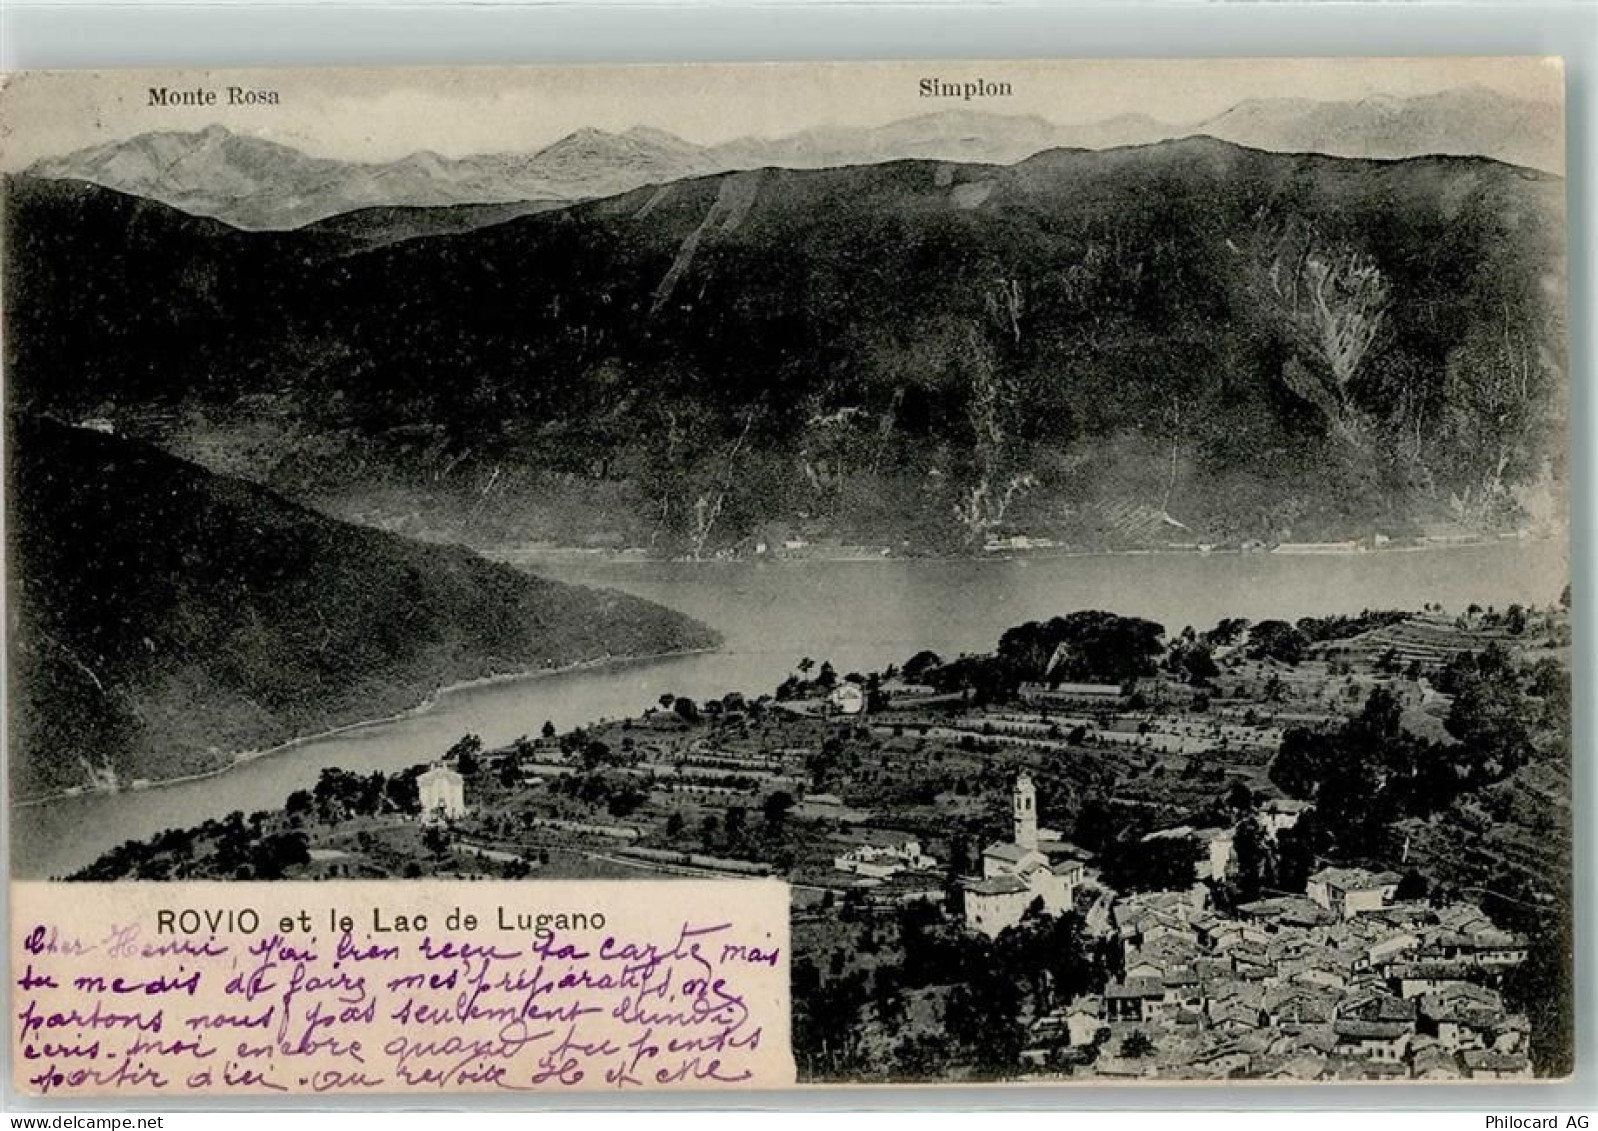 Monte Rosa
Simplon
ROVIO et le Lac de Lugano
Cher Henri, J'ai bien reçu ta carte, mais
tu me dis de faire mes préparatifs, ne
partons nous pas seulement lundi
écris-moi encore quand tu penses
partir d'ici. au revoir
Philocard AG